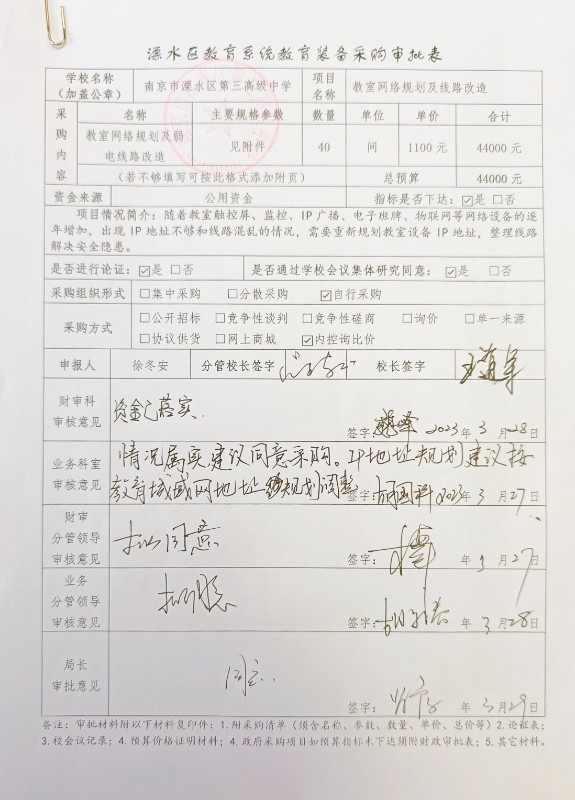 溧水区教育系统教育装备采购审批表
学校名称
（加盖公章）
南京市溧水区第三高级中学
项目
名称
教室网络规划及线路改造
采
购
内
容
名称 主要规格参数 数量 单位 单价 合计
教室网络规划及弱
电线路改造
见附件 40 间 1100元 44000元
（若不够填写可按此格式添加附页） 总预算 44000元
资金来源 公用资金 指标是否下达：☑是 □否
项目情况简介：随着教室触控屏、监控、IP广播、电子班牌、物联网等网络设备的逐
年增加，出现IP地址不够和线路混乱的情况，需要重新规划教室设备IP地址，整理线路
解决安全隐患。
是否进行论证：☑是 □否 是否通过学校会议集体研究同意：☑是 □否
采购组织形式 □集中采购 □分散采购 ☑自行采购
采购方式
□公开招标 □竞争性谈判 □竞争性磋商 □询价 □单一来源
□协议供货 □网上商城 ☑内控询比价
申报人 徐冬安 分管校长签字 校长签字
财审科
审核意见
资金已落实.
签字: 2023年3月28日
业务科室
审核意见
情况属实建议同意采购。IP地址规划建议按
教育城域网地址规划调整
签字: 2023年3月27日
财审
分管领导
审核意见
拟同意
签字: 年3月27
业务
分管领导
审核意见
拟同意
签字: 年3月28日
局长
审批意见
同意.
签字: 年3月29日
备注：审批材料附以下材料复印件：1.附采购清单（须含名称、参数、数量、单价、总价等）2.论证表；
3.校会议记录；4.预算价格证明材料；4.政府采购项目如预算指标未下达须附财政审批表；5.其它材料。